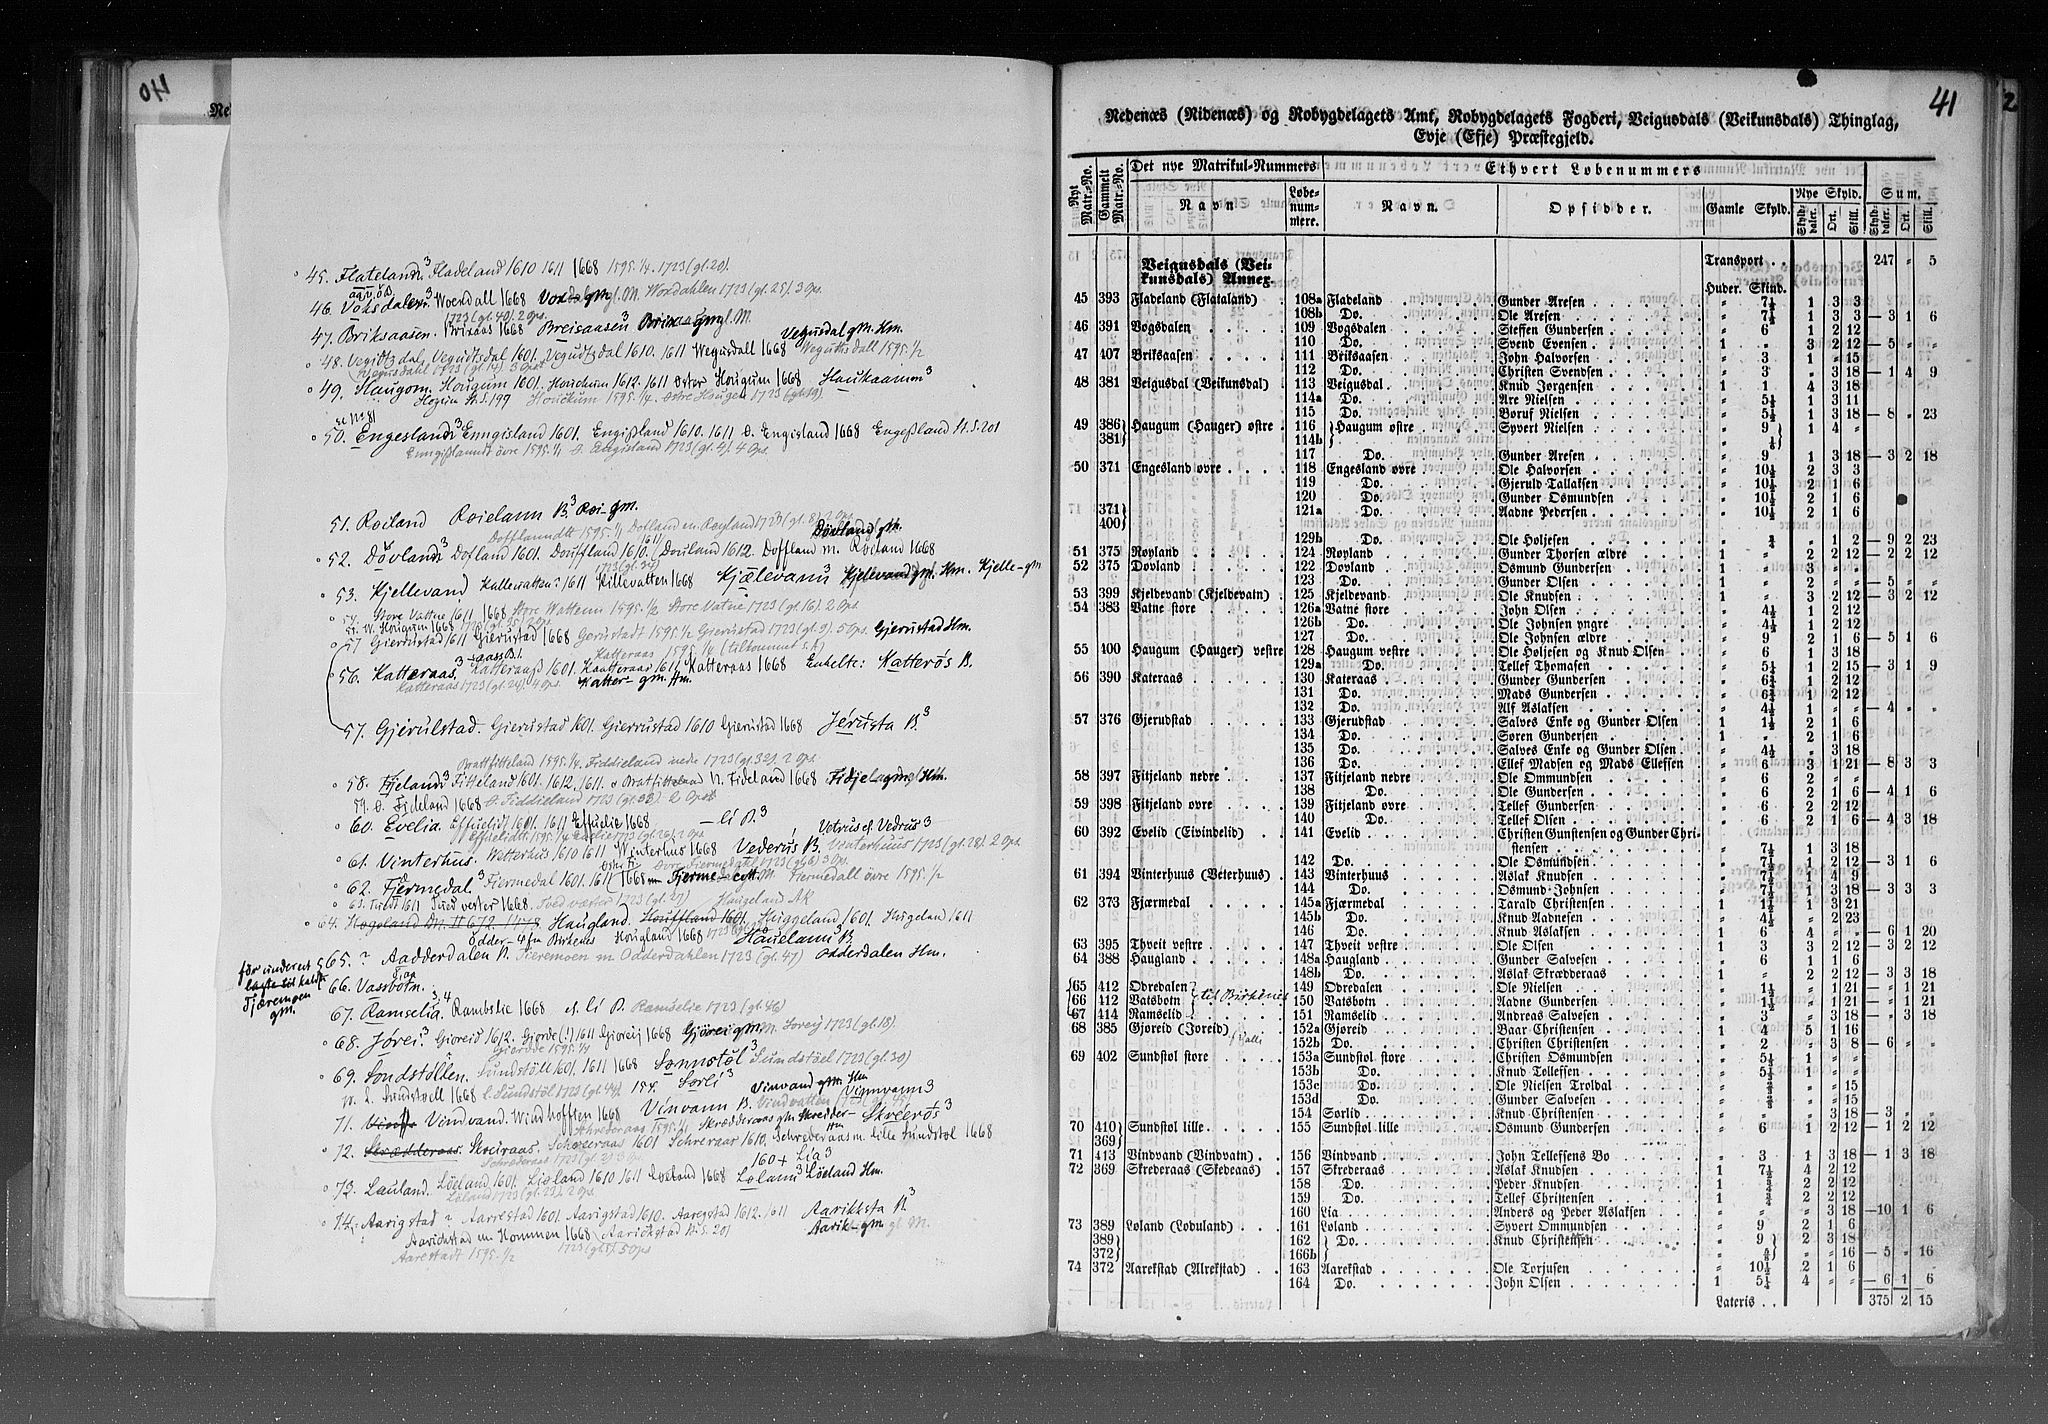 40
Ne
45. Flateland³ Fladeland 1610 1611 1668 1595.¼. 1723 (gl. 20).
46. Voksdalen³ Woxdall 1668 Voxdal gm gl. M. Woxdahlen 1723 (gl. 25) 3 Ops.
1723 (gl. 40). 2 Ops.
47. Briksaasen. Brixaas 1668 Breisaasen³ gm gl. M.
Vegusdal gm. Hm.
48. Vegutzdal, Vegudtsdal 1601. Vegudtzdal 1610. 1611 Wegusdall 1668 Weguttsdall 1595.½
49. Haugom. Hougum 1601. Houchum 1612. 1611 Øster Hougum 1668 Haukaamm³
Hogum N.S. 199 Houckum 1595.¼. Østre Hougen 1723 (gl. 19).
se No 81
50. Engesland³ Enngisland 1601. Engißland 1610. 1611 Ö. Engisland 1668 Engeßland N.S. 201
Enngißlanndt övre 1595.¼ Ö. Engisland 1723 (gl. 4). 4 Ops.
51. Roiland Roielann B.³ Roi- gm.
Dofflanndtt 1595.¼ Dofland m. Royland 1723 (gl. 8) 2 Ops. Dövland gm.
52. Dövland³ Dofland 1601. Douffland 1610. Douland 1612. Doffland m. Roiland 1668
1723 (gl. 37)
53. Kjellevand Kallevatten? 1611 Killevatten 1668 Kjælevann³ Kjellevand gm. Hm. Kjelle- gm
54. Store Vattne 1611 1668 Store Wattenn 1595.½ Store Vatne 1723 (gl. 16). 2 Ops
55. W. Hougum 1668
57 Gierustad 1611 Gierustad 1668 Gerustadt 1595.½ Gierustad 1723 (gl. 9). 5 Ops. Gjerustad Hm.
Katteraas 1595.¼ (tilkommet s.k)
56. Katteraas.³ Katteraaß 1601. Kaatteraas 1611 Katteraas 1668 Enkelte: Katterøs B.
Katteraas 1723 (gl. 24). 4 Ops. Katter- gm. Hm.
57. Gjerulstad. Gierustad 1601. Gierrustad 1610 Gierustad 1668 Jérusta B.³
Brattfitteland 1595.¼. Fiddieland nede 1723 (gl. 32). 2 Ops.
58. Fjeland³ Fitteland 1601. 1612. 1611. N. Fideland 1668 Fidjeland gm. Hm.
59. Ö. Fideland 1668 Ö. Fiddieland 1723 (gl. 33). 2 Ops
60. Evelia. Effuelid 1601. 1611 Effuelie 1668 – li B.³ Vetrus el. Vedrus³
61. Vinterhus. Wetterhus 1610 1611 Winterhus 1668 Vederús B. Vinterhuus 1723 (gl. 28). 2 Ops.
62. Fjermedal.³ Fiermedal 1601. 1611 1668 Fjerme- gm. M. Fiermedall övre 1595.½
63. Tued vester 1668. Tved væster 1723 Haugeland NR
64. Hogeland DN. II 672, 1448 Haugland. Houffland 1601. Huggeland 1601. Hugelan 1611
Odder- 4 fra Birkenes Hougland 1668 Hauelann B.³
før underet
65. ? Aadderdalen B. Fieremoen m Odderdahlen 1723 (gl. 47) Odderdalen Hm.
66. Vassbotn.
Fjæremoen
gm.
67. Ramselia.³,⁴ Rambslie 1668 el. li B. Ramselie 1723 (gl. 46)
68. Jørei.³ Gioreid 1612. Giorde (!) 1611 Gioreij 1668 Gjörei gm. M. Iorey 1723 (gl. 18).
Giorde 1595.¼
69. Sondstölten. Sundstöll 1601. 1611 1668 Sonnstöl³ Sundstöel 1723 (gl. 30)
70. L. Sundstoell 1668 l. Sundstöl 1723 (gl. 44). 154. Sorli³
Vinvand gm. Hm
71. Vindvand. Windhofften 1668 Vinvann B. Vindvatten 1723 (gl. 45) Vinnvann³
72. Skrædderaas. Skreiraas. Schreeraas 1601 Schreraar 1610. Schrederaas m. Lille Sundstöl 1668
Schræderaas 1723 (gl. 2) 3 Ops. 160 + Lia³
73. Lauland. Löeland 1601. Lioland 1610 1611 Loeland 1668 Lølann³ Löeland Hm.
Löland 1723 (gl. 23). 2 Ops.
74. Aarigstad ? Aarrestad 1601. Aarigstad 1610. Aaregstad 1612. 1611 Aarikksta B.³
Aarichstad m Hommen 1668 Aarichstad N.S. 201 Aarik- gm gl. M.
Aarestadt 1595.½ 1723 (gl. 5). 5 Ops
41
Nedenæs (Nidenæs) og Robygdelagets Amt, Robygdelagets Fogderi, Veigusdals (Veikunsdals) Thinglag,
Evje (Efje) Præstegjeld.
Nyt Matr.-No. Gammelt Matr.-No. Det nye Matrikul-Nummers Ethvert Løbenummers
Navn Løbe-nummere. Navn. Opsidder. Gamle Skyld. Nye Skyld. Sum.
Skylddaler. Ort. Skill. Skylddaler. Ort. Skill.
Veigusdals (Veikunsdals) Annex. Transport . . 247 " 5
Huder. Skind.
45 393 Fladeland (Flataland) . . 108a Fladeland Gunder Aresen " 7½ 1 3 3
108b Do. Ole Aresen " 7½ 1 3 3 — 3 1 6
46 391 Vogsdalen 109 Vogsdalen Steffen Gundersen " 6 1 2 12
110 Do. Svend Evensen 1 " 3 2 12 — 5 " "
47 407 Briksaasen 111 Briksaasen John Halvorsen " 3 1 " 15
112 Do. Christen Svendsen " 3 " 3 18 — 1 4 9
48 381 Veigusdal (Veikunsdal) . 113 Veigusdal Knud Jørgensen 1 1 4 3 18
114a Do. Are Nielsen " 5½ 1 3 11
115 Do. Boruf Nielsen " 5½ 1 3 18 — 8 " 23
49 386 Haugum (Hauger) østre . 116 Haugum østre Syvert Nielsen " 9 1 4 "
381 114b
117 Do. Gunder Aresen " 9 1 3 18 — 3 2 18
50 371 Engesland øvre 118 Engesland øvre Ole Halvorsen " 10½ 2 3 3
119 Do. Gjeruld Tallaksen " 10½ 2 1 6
120 Do. Gunder Osmundsen " 10½ 2 1 6
371 121a Do. Aadne Pedersen " 10½ 2 1 6
400
129b Do. Ole Holjesen " " 1 2 — 9 2 23
51 375 Røyland 124 Røyland Gunder Thorsen ældre 1 " 2 2 12 — 2 2 12
52 375 Dovland 122 Dovland Osmund Gundersen 1 " 3 " "
123 Do. Gunder Olsen 1 " 2 " " — 5 " "
53 399 Kjeldevand (Kjeldevatn) . 125 Kjeldevand Ole Knudsen 1 " 3 2 12 — 3 2 12
54 383 Vatne store 126a Vatne store John Olsen " 4½ 1 2 12
126b Do. Ole Johnsen yngre " 4½ 1 2 12
127 Do. Ole Johnsen ældre " 9 2 1 6 — 5 1 6
55 400 Haugum (Hauger) vestre 128 Haugum vestre Ole Holjesen og Knud Olsen " 6 1 3 18
129a Do. Tellef Thomasen " 5¼ 1 2 15 — 3 1 9
56 390 Kateraas 130 Kateraas Gunder Gundersen " 6¾ 1 2 12
131 Do. Mads Gundersen " 6¾ 1 2 12
132 Do. Alf Aslaksen " 4½ 1 " " — 4 " "
57 376 Gjerudstad 133 Gjerudstad Salves Enke og Gunder Olsen 1 1½ 2 1 6
134 Do. Søren Gundersen 1 " 2 1 6
135 Do. Salves Enke og Gunder Olsen " 4½ " 3 18
136 Do. Ellef Madsen og Mads Ellefsen " 6 3 1 21 — 8 3 3
58 397 Fitjeland nedre 137 Fitjeland nedre Ole Ommundsen " 6 2 " "
138 Do. Ole Gundersen " 6 2 1 6 — 4 1 6
59 398 Fitjeland øvre 139 Fitjeland øvre Tellef Gundersen " 6 2 2 12
140 Do. Tellef Olsen " 6 2 1 6 — 4 3 18
60 392 Evelid (Eivindelid) . . 141 Evelid Christen Gunstensen og Gunder Chri-
stensen " 7½ 1 3 18
142 Do. Ole Osmundsen " 7½ 1 2 12 — 3 1 6
61 394 Vinterhuus (Veterhuus) . 143 Vinterhuus Aslak Knudsen " 7½ 1 4 9
144 Do. Osmund Johnsen " 7½ 1 3 18 — 3 3 3
62 373 Fjærmedal 145a Fjærmedal Tarald Christensen 1 1½ 1 3 21
145b Do. Knud Aadnesen " 4½ " 2 23
146 Do. Knud Aslaksen 1 6 4 " " — 6 1 20
63 395 Thveit vestre 147 Thveit vestre Ole Olsen " 3 3 2 12 — 3 2 12
64 388 Haugland 148a Haugland Gunder Salvesen " 6 1 1 6
148b Do. Aslak Skrædderaas " " 2 2 12 — 3 3 18
65 412 Odredalen 149 Odredalen Ole Nielsen " 1½ " 1 21 — " 1 21
66 412 Vatsbotn til Birkenes 150 Vatsbotn Aadne Gundersen " 1½ " 1 21 — " 1 21
67 414 Ramselid 151 Ramselid Andreas Salvesen " 3 " 3 18 — " 3 18
68 385 Gjøreid (Joreid) 152a Gjøreid Baar Christensen " 4 5 1 16
152b Do. Christen Christensen " 2 " 3 8 — 6 " "
69 402 Sundstøl store 153a Sundstøl store Christen Osmundsen " 5¼ 1 " "
153b Do. Knud Tollefsen " 5¼ 1 " "
153c Do. Ole Nielsen Troldal " " " 15
153d Do. Gunder Salvesen " " " 15
154 Sørlid Knud Christensen " " " 3 18 — 3 " "
70 410 Sundstøl lille 155 Sundstøl lille Osmund Gundersen " 6 1 2 12 — 1 2 12
369
71 413 Vindvand (Vindvatn) . . 156 Vindvand John Tellefsens Bo " 3 1 3 18 — 1 3 18
72 369 Skrederaas (Skedeaas) . . 157 Skrederaas Aslak Knudsen 1 7½ 4 2 12
158 Do. Peder Knudsen 1 2 2 12
159 Do. Tellef Christensen 1 2 2 12
160 Lia Anders og Peder Aslaksen " " " 3 18 — 10 1 6
73 389 Loland (Lovuland) . . . 161 Loland Syvert Ommundsen " 9 2 1 6
389 162 Do. Knud Christensen " 9 2 3 18
372 166b " 16 — 5 " 16
74 372 Aarekstad (Alrekstad) . . 163 Aarekstad Ole Torjusen " 10½ 2 1 6
164 Do. John Olsen 1 5¼ 4 " " — 6 1 6
Lateris . . 375 2 15